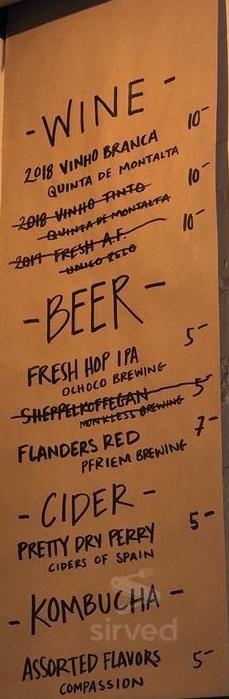 - WINE -
2018 VINHO BRANCA 10-
QUINTA DE MONTALTA
2018 VINHO TINTO 10-
QUINTA DE MONTALTA
2019 FRESH A.F. 10-
UNICO ZELO
- BEER -
FRESH HOP IPA 5-
OCHOCO BREWING
SHEPPELKOFFEGAN 5-
MONKLESS BREWING
FLANDERS RED 7-
PFRIEM BREWING
- CIDER -
PRETTY DRY PERRY 5-
CIDERS OF SPAIN
- KOMBUCHA -
sirved
ASSORTED FLAVORS 5-
COMPASSION